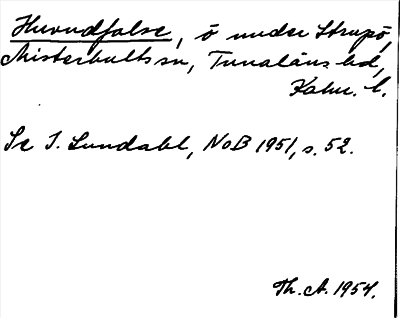 Huvudfalse, ö under Strupö,
Misterhults sn, Tunaläns hd,
Kalm. l.
Se I. Lundahl, NoB 1951, s. 52.
Th. A. 1954.